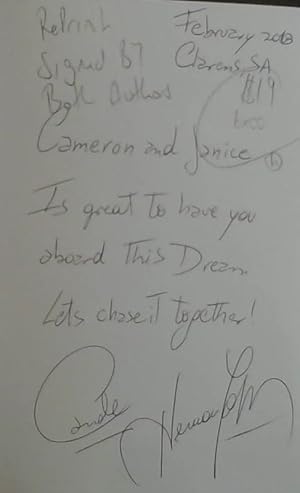 Reprint
Signed By
Both Authors
February 2013
Clarens, SA
$19
Cameron and Janice
Is great to have you
aboard This Dream.
Lets chase it together!
Cande Herman